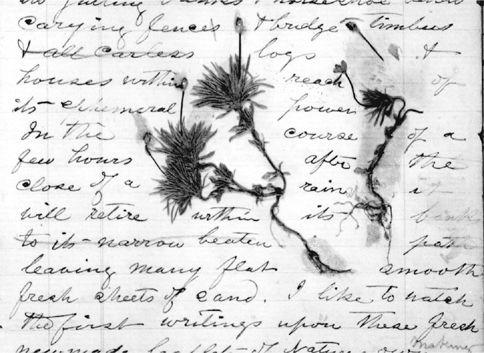 carying fences & bridge timbers
& all carless logs &
houses within reach of
its ephemeral power
In the course of a
few hours after the
close of a rain it
will retire within its bank
to its narrow beaten path
leaving many flat smooth
fresh sheets of sand. I like to watch
the first writings upon these fresh
new made leaflets of Nature's own